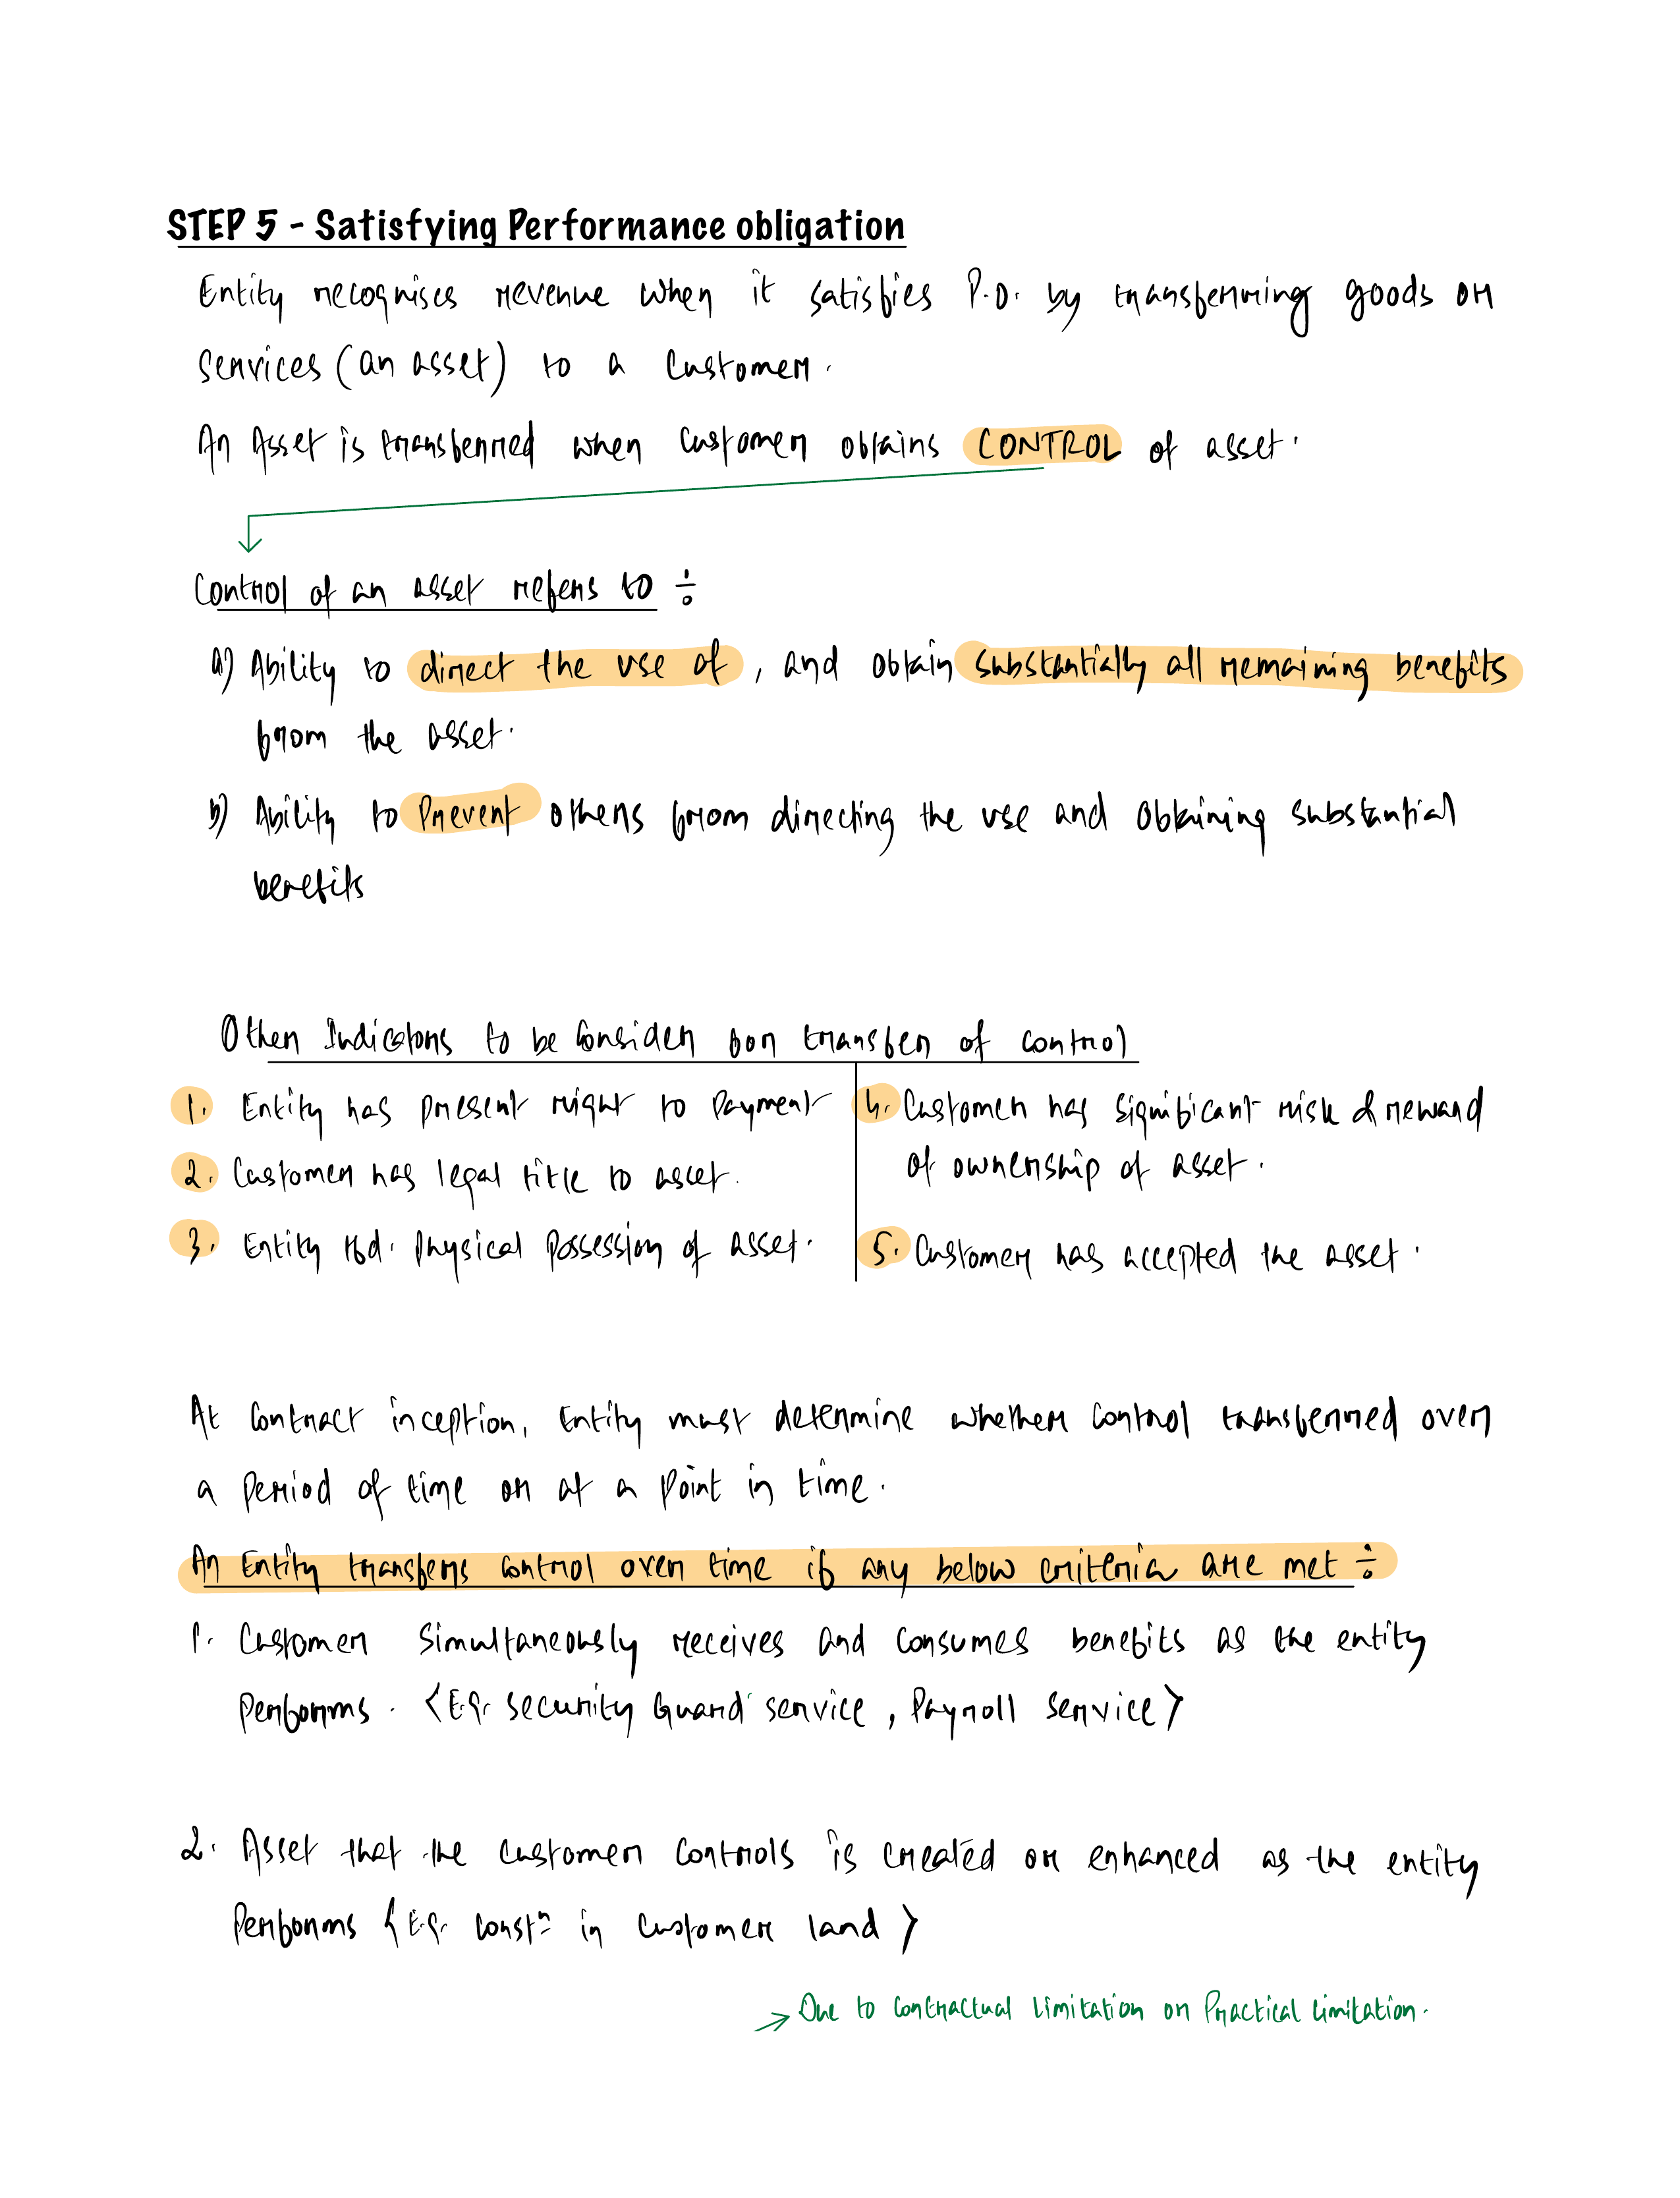 STEP 5 - Satisfying Performance obligation
Entity recognises revenue when it satisfies P.O. by transferring goods or
services (an asset) to a customer.
An Asset is transferred when customer obtains CONTROL of asset.
Control of an asset refers to ÷
a) Ability to direct the use of, and obtain substantially all remaining benefits
from the asset.
b) Ability to Prevent others from directing the use and obtaining substantial
benefits
Other Indicators to be Consider for transfer of control
1. Entity has present right to payment
2. Customer has legal title to asset.
3. Entity tfd. Physical Possession of asset.
4. Customer has significant risk & reward
of ownership of asset.
5. Customer has accepted the asset.
At contract inception, Entity must determine whether control transferred over
a period of time or at a point in time.
An Entity transfers control over time if any below criteria are met ÷
1. Customer simultaneously receives and consumes benefits as the entity
Performs. <E.g. security Guard service, Payroll service>
2. Asset that the customer controls is created or enhanced as the entity
Performs {E.g. constⁿ in customer land >
→ Due to contractual limitation or Practical limitation.